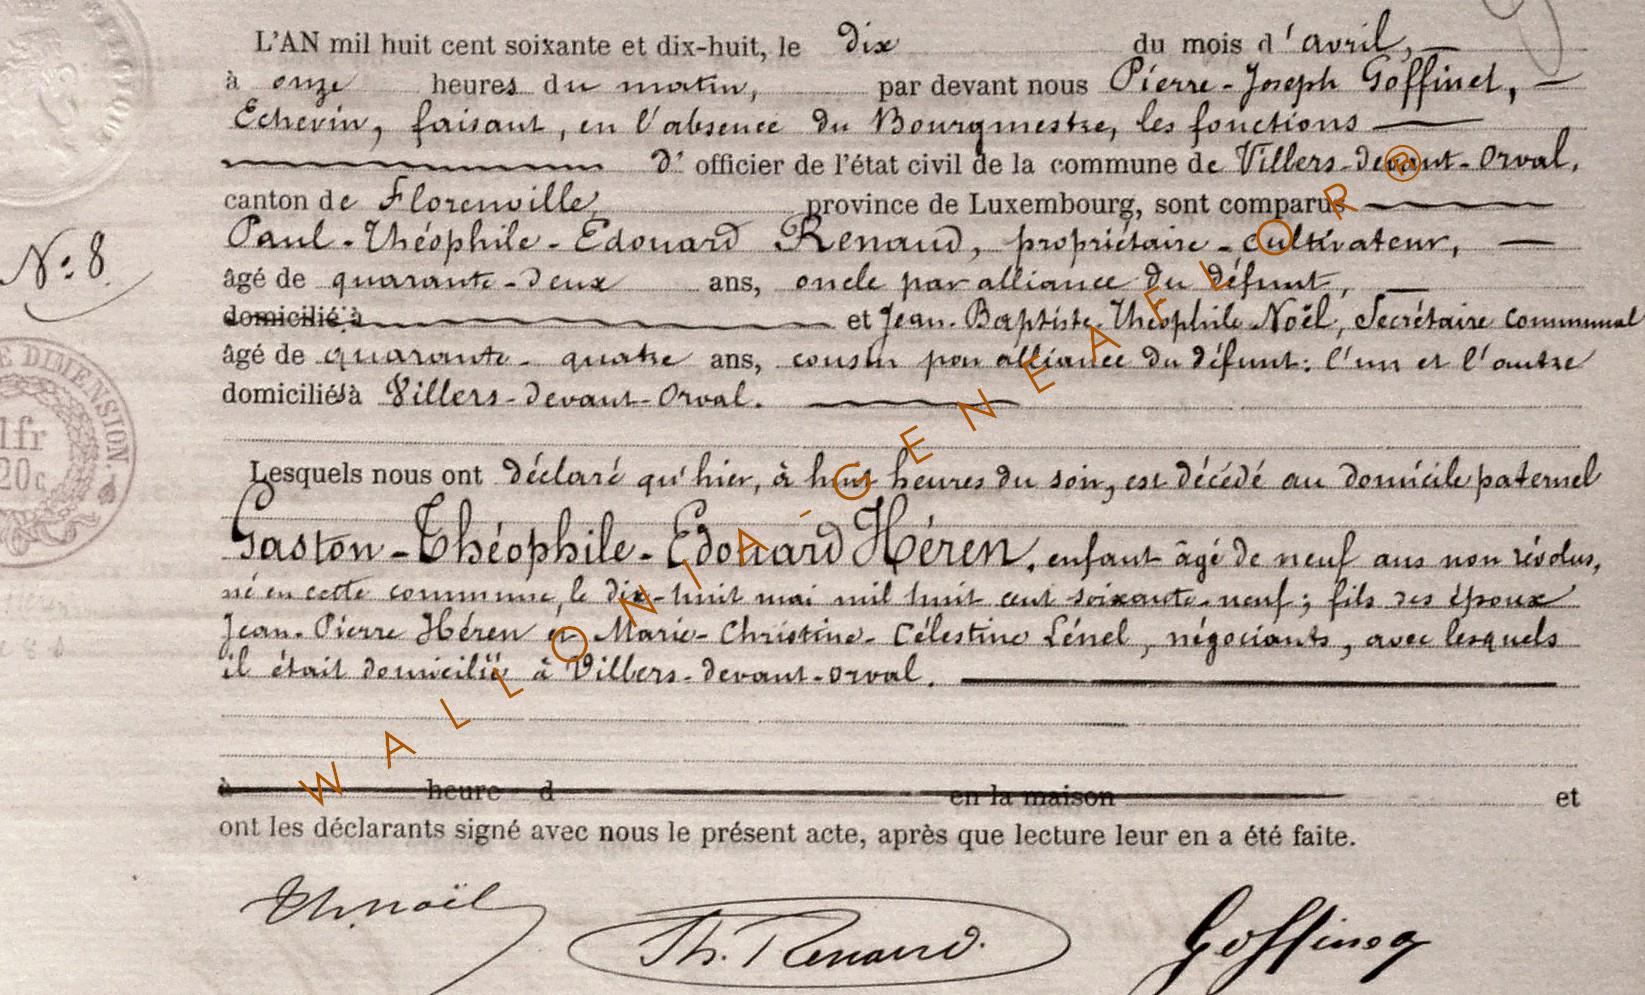 L'AN mil huit cent soixante et dix-huit, le dix du mois d'avril,
à onze heures du matin, par devant nous Pierre-Joseph Goffinet,
Echevin, faisant, en l'absence du Bourgmestre, les fonctions
d'officier de l'état civil de la commune de Villers-devant-Orval,
canton de Florenville, province de Luxembourg, sont comparus
Paul-Théophile-Edouard Renaud, propriétaire-cultivateur,
N° 8.
âgé de quarante-deux ans, oncle par alliance du défunt,
domicilié à et Jean-Baptiste-Théophile Noël, Secrétaire communal
âgé de quarante-quatre ans, cousin par alliance du défunt: l'un et l'autre
domiciliés à Villers-devant-Orval.
E DIMENSION.
1fr
20c
Lesquels nous ont déclaré qu'hier, à huit heures du soir, est décédé au domicile paternel
Gaston-Théophile-Edouard Héren, enfant âgé de neuf ans non révolus,
né en cette commune, le dix-huit mai mil huit cent soixante-neuf; fils des époux
Jean-Pierre Héren et Marie-Christine-Célestine Lénel, négociants, avec lesquels
il était domicilié à Villers-devant-Orval.
à heure d en la maison et
ont les déclarants signé avec nous le présent acte, après que lecture leur en a été faite.
Th. Noël
Th. Renaud.
Goffinet
WALLONIA-GENEAFLOR®